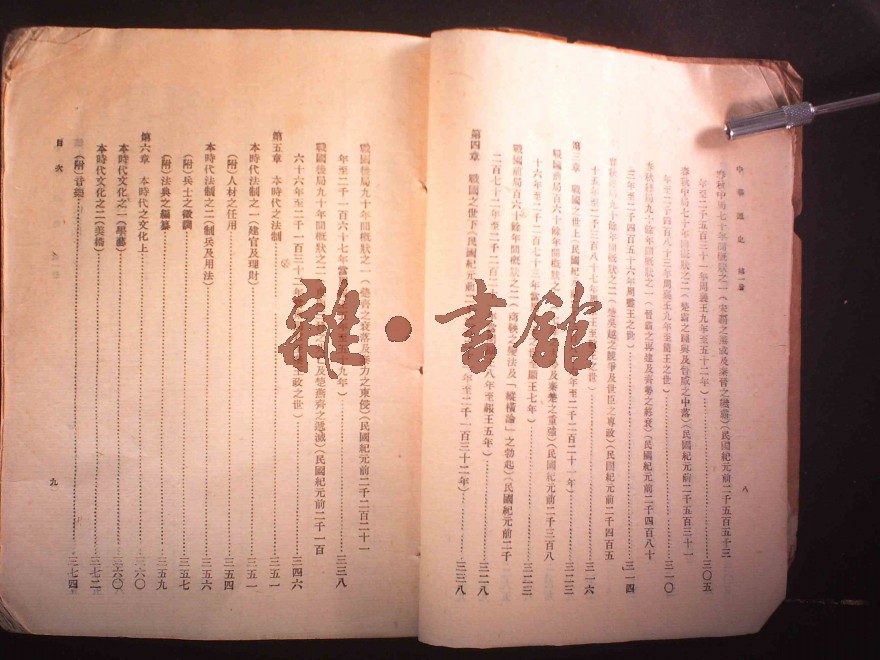 中華通史 第一册
春秋中局七十年間概狀之一（宋霸之無成及秦晉之
年至二千五百三十一年周襄王九年至五十二年）……三〇五
春秋中局七十年間概狀之二（楚霸之國與及晉威之中落）（民國紀元前二千五百三十一
年至二千四百八十三年周
王之世）……三一〇
春秋終局九十餘年間概狀之一（晉霸之再建及齊勢之終衰）（民國紀元前二千四百八十
三年至二千四百五十六年周靈王之世）……三一四
春秋終局九十餘年間概狀之二（楚吳越之競爭及世臣之專政）（民國紀元前二千四百五
十五年至二千三百八十七年
王之世）……三一六
第三章 戰國之世上（民國紀元前二千三百八
年至二千二百二十一年）……三二三
戰國前局百六十餘年間概狀之一
及秦楚之重強）（民國紀元前二千三百八
十六年至二千二百七十三年
顯王七年）……三二三
戰國前局百六十餘年間概狀之二（商鞅之變法及「縱橫論」之勃起）（民國紀元前二千
二百七十二年至二千二百二十
八年至赧王五年）……三二八
第四章 戰國之世下（民國紀元前二
年至二千一百三十二年）……三三八
八
戰國後局九十年間概狀之一（楚齊之衰落及秦力之東侵）（民國紀元前二千二百二十一
年至二千一百六十七年
九年）……三三八
戰國後局九十年間概狀之二
及楚燕齊之遞滅）（民國紀元前二千一百
六十六年至二千一百三十二年
王政之世）……三四六
第五章 本時代之法制……三五一
本時代法制之一（建官及理財）……三五一
（附）人材之任用……三五四
本時代法制之二（制兵及用法）……三五六
（附）兵士之徵調……三五七
（附）法典之編纂……三五九
第六章 本時代之文化上……三六〇
本時代文化之一（學藝）……三六〇
本時代文化之二（美術）……三七二
（附）音樂……三七四
目次
九
雜·書館